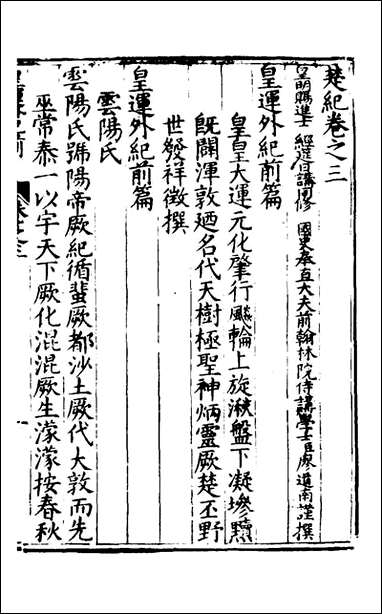 楚紀卷之三
皇明賜進士 經筵日講同修 國史奉直大夫前翰林院侍講學士臣廖道南謹撰
皇運外紀前篇
皇皇大運元化肇行颷輪上旋濑盤下凝墋黷
既闢渾敦廼名代天樹極聖神炳靈厥楚丕野
世發祥徵撰
皇運外紀前篇
雲陽氏
雲陽氏號陽帝厥紀循蜚厥都沙土厥代大敦而先
巫常泰一以宇天下厥化混混厥生濛濛按春秋